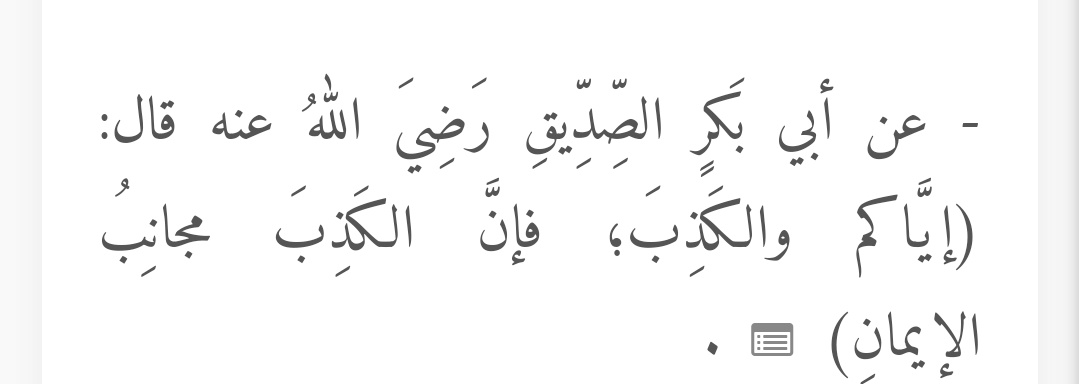 - عن أبي بَكرٍ الصِّدِّيقِ رَضِيَ اللهُ عنه قال:
(إيَّاكم والكَذِبَ؛ فإنَّ الكَذِبَ مجانِبُ
الإيمانِ) .